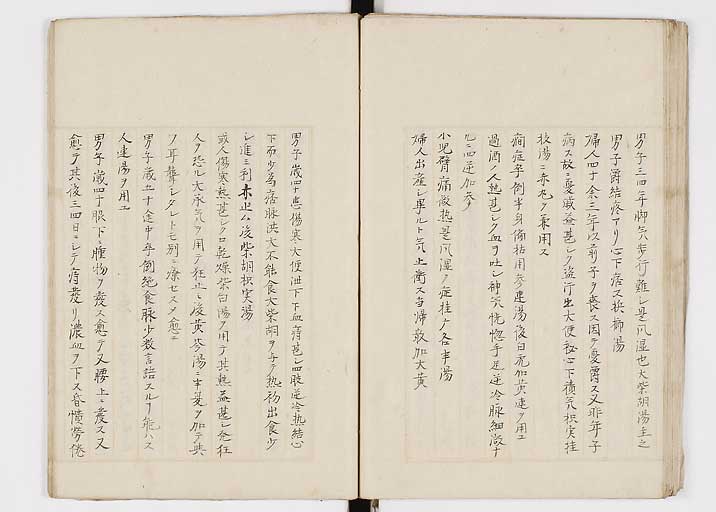 男子三四年脚気歩行難シ是風湿也大柴胡湯主之
男子欝結疼アリ心下痞ス梹榔湯
婦人四十余三年以前子ヲ喪ス因テ憂欝ス又昨年子
病ス故ニ憂慼益甚シク盗汗出大便秘心下積気枳実桂
枝湯ニ赤丸ヲ兼用ス
癇症卒倒半身偏枯用参連湯後白虎加黄連ヲ用エ
過酒ノ人熱甚シク血ヲ吐シ神気恍惚手足逆冷脉細微ナ
ルニ四逆加参
小児臂痛微熱是風湿ノ症桂广各半湯
婦人出産シ畢ルト気上衝ス当帰散加大黄
男子歳四十患傷寒大便泄下下血痔甚シ四肢逆冷熱結心
下而少為痞脉洪大不能食大柴胡ヲ与テ熱初出食少
シ進ミ利未止ム後柴胡枳実湯
或人傷寒熱甚シク口乾燥柴白湯ヲ用テ其熱益甚シ発狂
人ヲ恐ル大承気ヲ用テ狂止ミ後黄芩湯ニ半夏ヲ加テ与
フ耳聾シタレトモ別ニ療セスメ愈エ
男子歳五十途中卒倒絶食脉少数言語スルヿ能ハス
人連湯ヲ用エ
男子歳四十眼下ニ腫物ヲ発ス愈テ又腰上ニ発ス又
愈テ其後三四日ニシテ痔発リ濃血ヲ下ス昏憒労倦